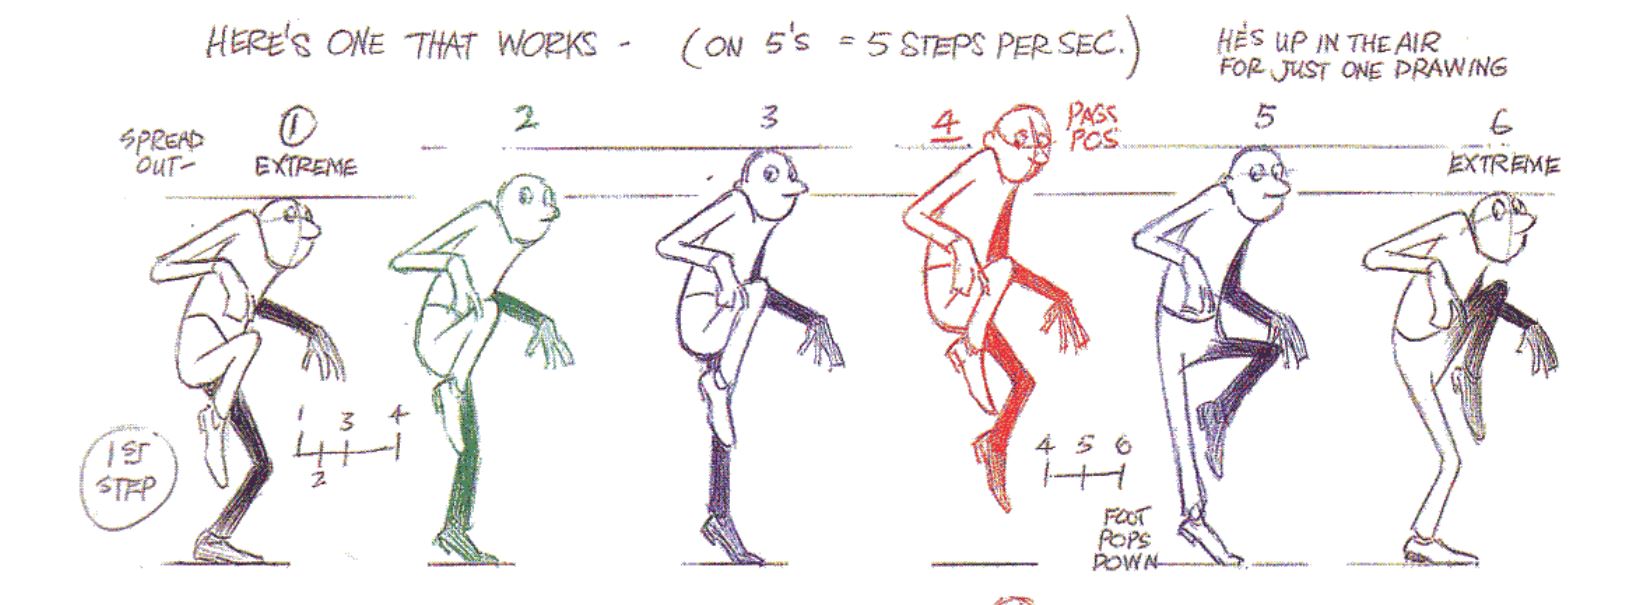 HERE'S ONE THAT WORKS - (ON 5'S = 5 STEPS PER SEC.)
HE'S UP IN THE AIR
FOR JUST ONE DRAWING
SPREAD
OUT-
1
EXTREME
2
3
4
PASS
POS
5
6
EXTREME
1ST
STEP
1 3 4
2
4 5 6
FOOT
POPS
DOWN